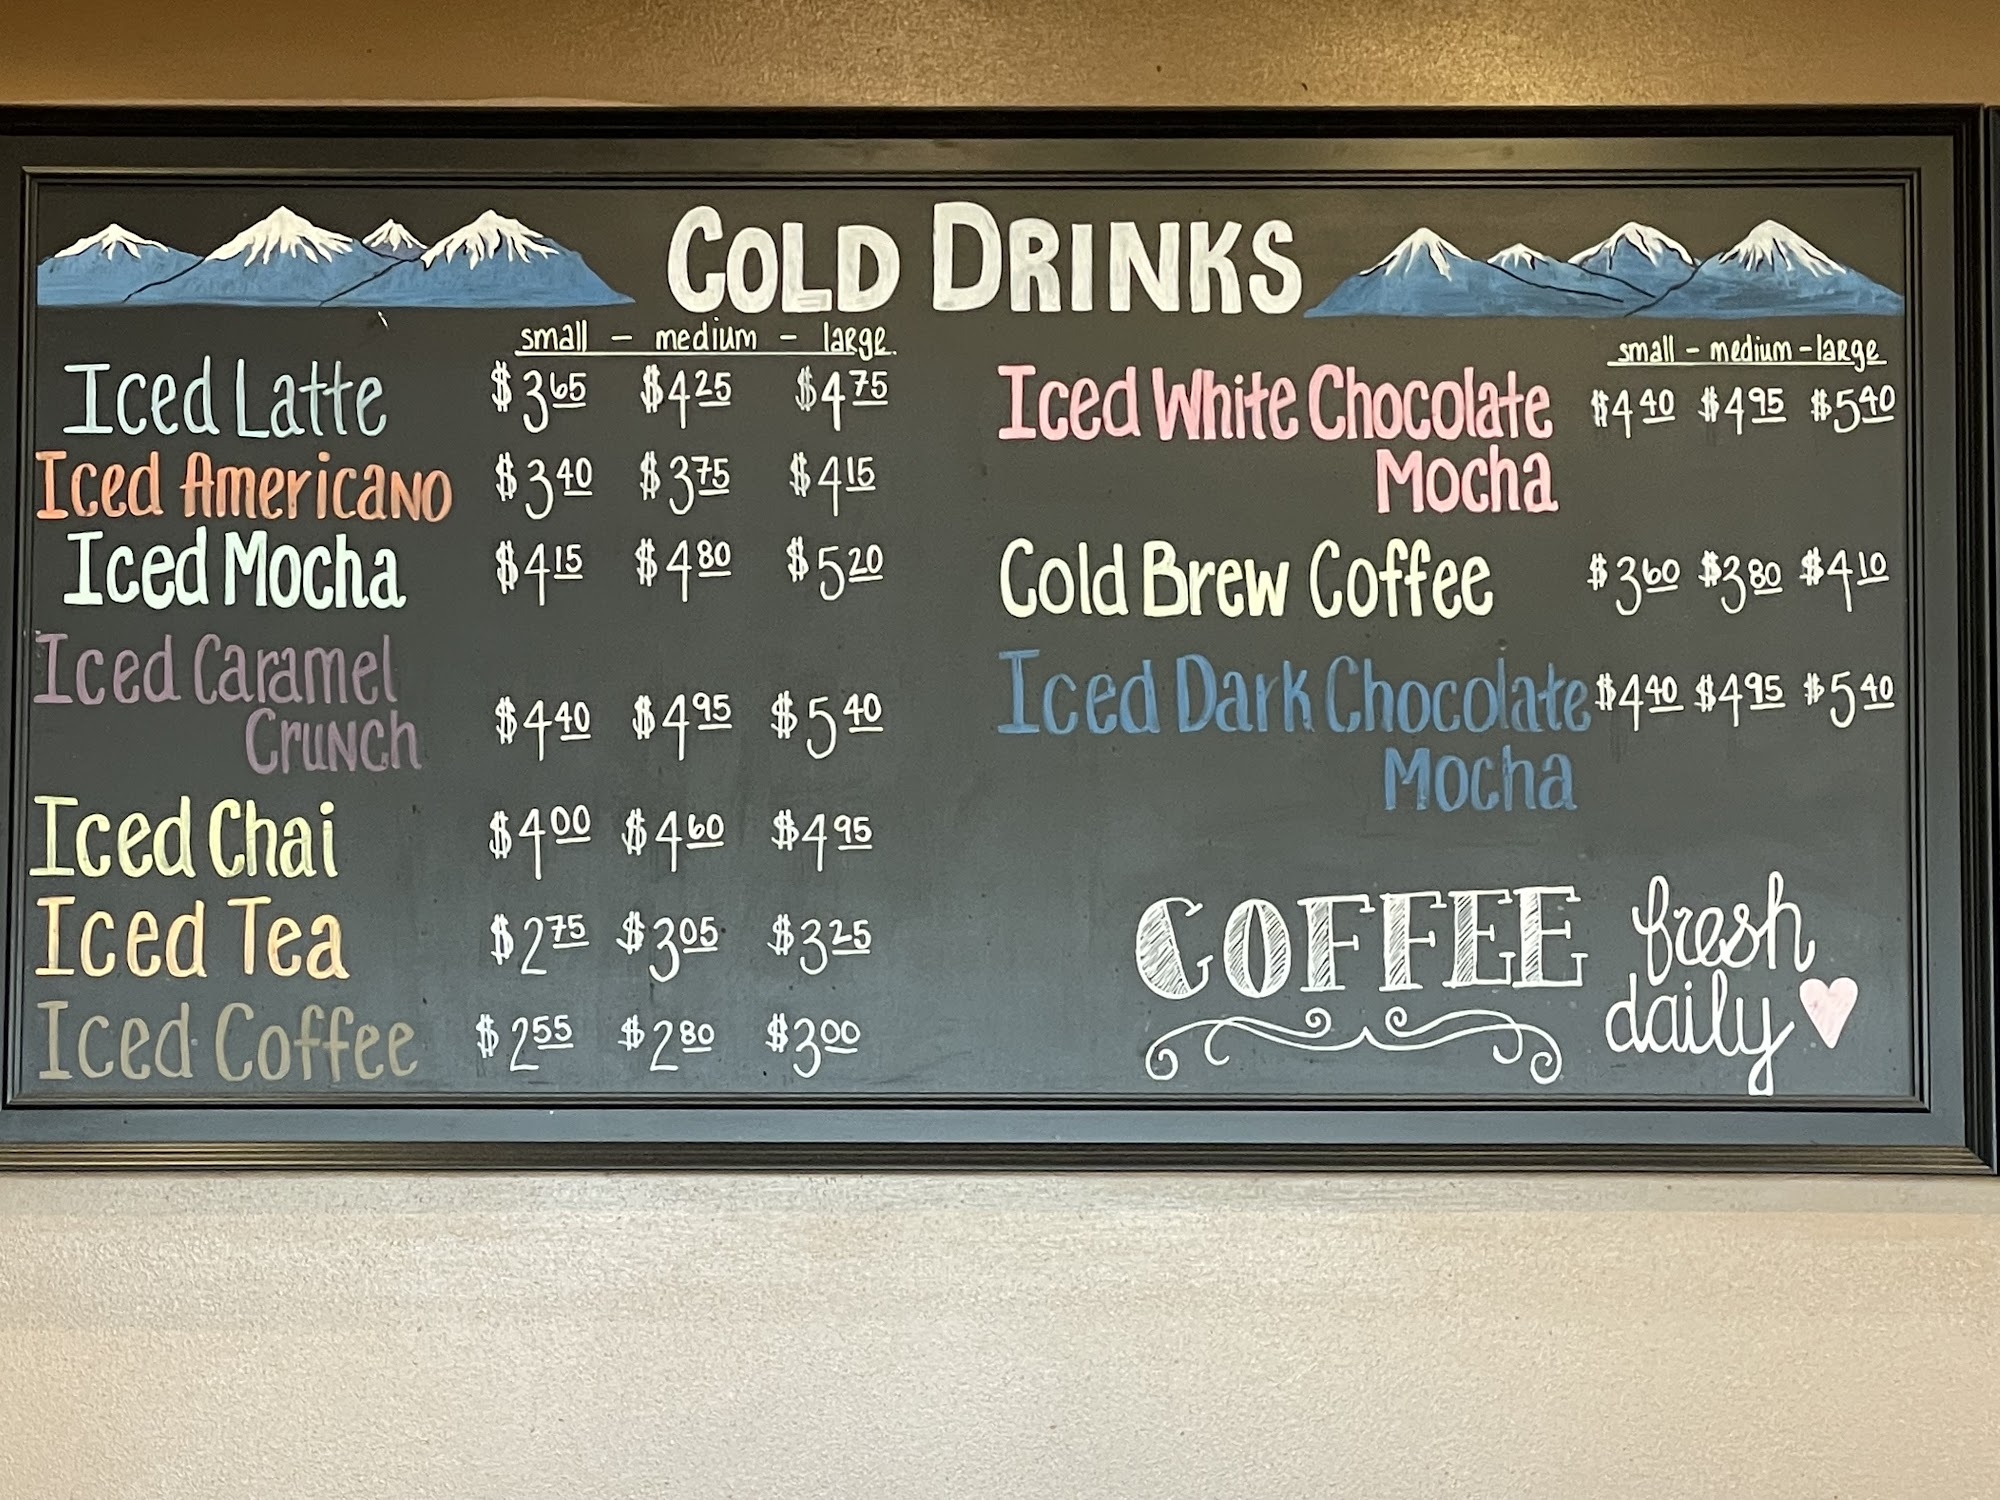 COLD DRINKS
small - medium - large
Iced Latte $3.65 $4.25 $4.75
Iced Americano $3.40 $3.75 $4.15
Iced Mocha $4.15 $4.80 $5.20
Iced Caramel
Crunch $4.40 $4.95 $5.40
Iced Chai $4.00 $4.60 $4.95
Iced Tea $2.75 $3.05 $3.25
Iced Coffee $2.55 $2.80 $3.00
small - medium - large
Iced White Chocolate $4.40 $4.95 $5.40
Mocha
Cold Brew Coffee $3.60 $3.80 $4.10
Iced Dark Chocolate $4.40 $4.95 $5.40
Mocha
COFFEE fresh
daily